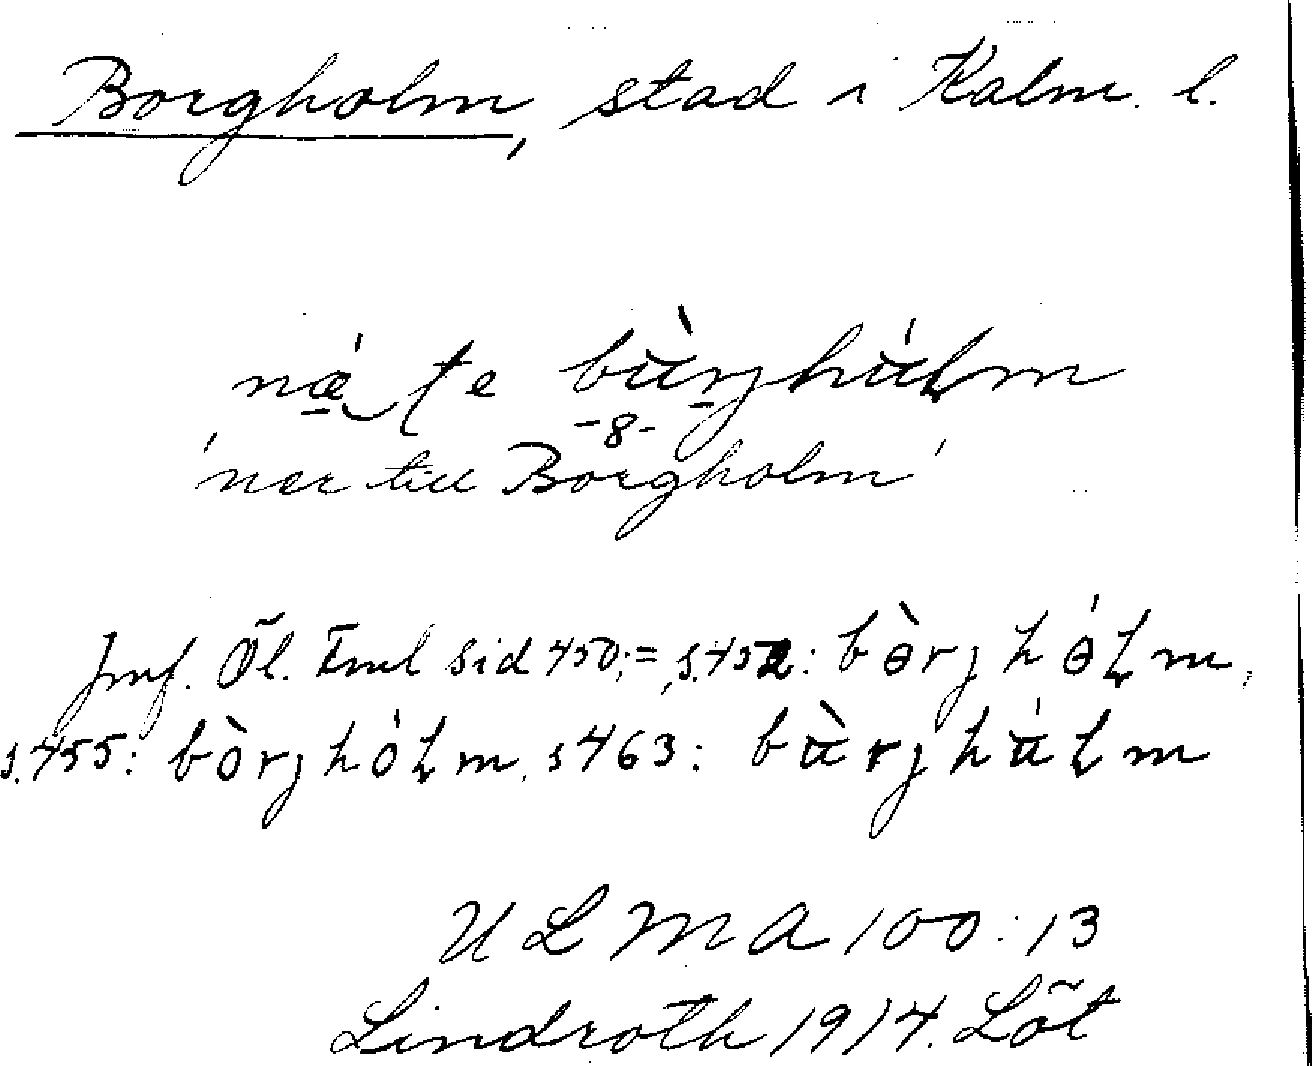 Borgholm, stad i Kalm. l.
næ̀ te bùrjhúlm
-8-
'ner till Borgholm'
Jmf. Öl. Eml sid 450; =, s. 452: bòrjhólm,
s. 455: bòrjhólm, s 463: bùrjhúlm
ULMA 100:13
Lindroth 1914. Löt